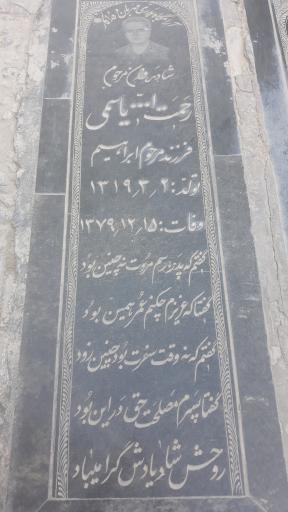 شادروان مرحوم
رحمت الله یاسمی
فرزند مرحوم ابراهیم
تولد: ۱۳۱۹٫۳٫۲
وفات: ۱۳۷۹٫۱۲٫۱۵
گفتم که پدر رسم مروت نه چنین بود
گفتا که عزیزم چکنم عمر همین بود
گفتم که نه وقت سفرت بود چنین زود
گفتا پسرم مصلحت حق در این بود
روحش شاد یادش گرامیباد